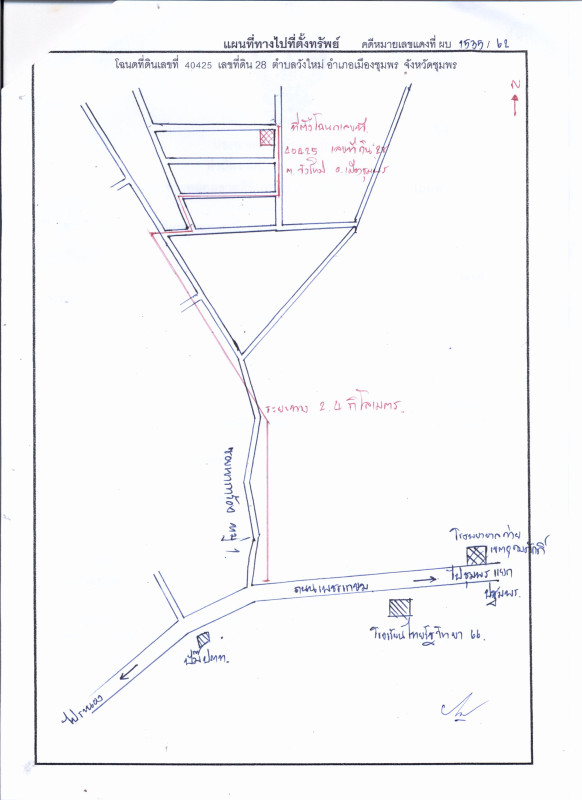 แผนที่ทางไปที่ตั้งทรัพย์ คดีหมายเลขแดงที่ ผบ 1535/62
โฉนดที่ดินเลขที่ 40425 เลขที่ดิน 28 ตำบลวังใหม่ อำเภอเมืองชุมพร จังหวัดชุมพร
N
ที่ตั้งโฉนดเลขที่
40425 เลขที่ดิน 28
ต วังใหม่ อ.เมืองชุมพร
ระยะทาง 2.4 กิโลเมตร.
หมู่ 1.
โรงพยาบาลค่าย
เขตอุดมศักดิ์
ถนนเพชรเกษม
ไปชุมพร แยก
ปชุมพร.
โรงเรียนไทยรัฐวิทยา 66.
ปั๊มปตท.
ไประนอง